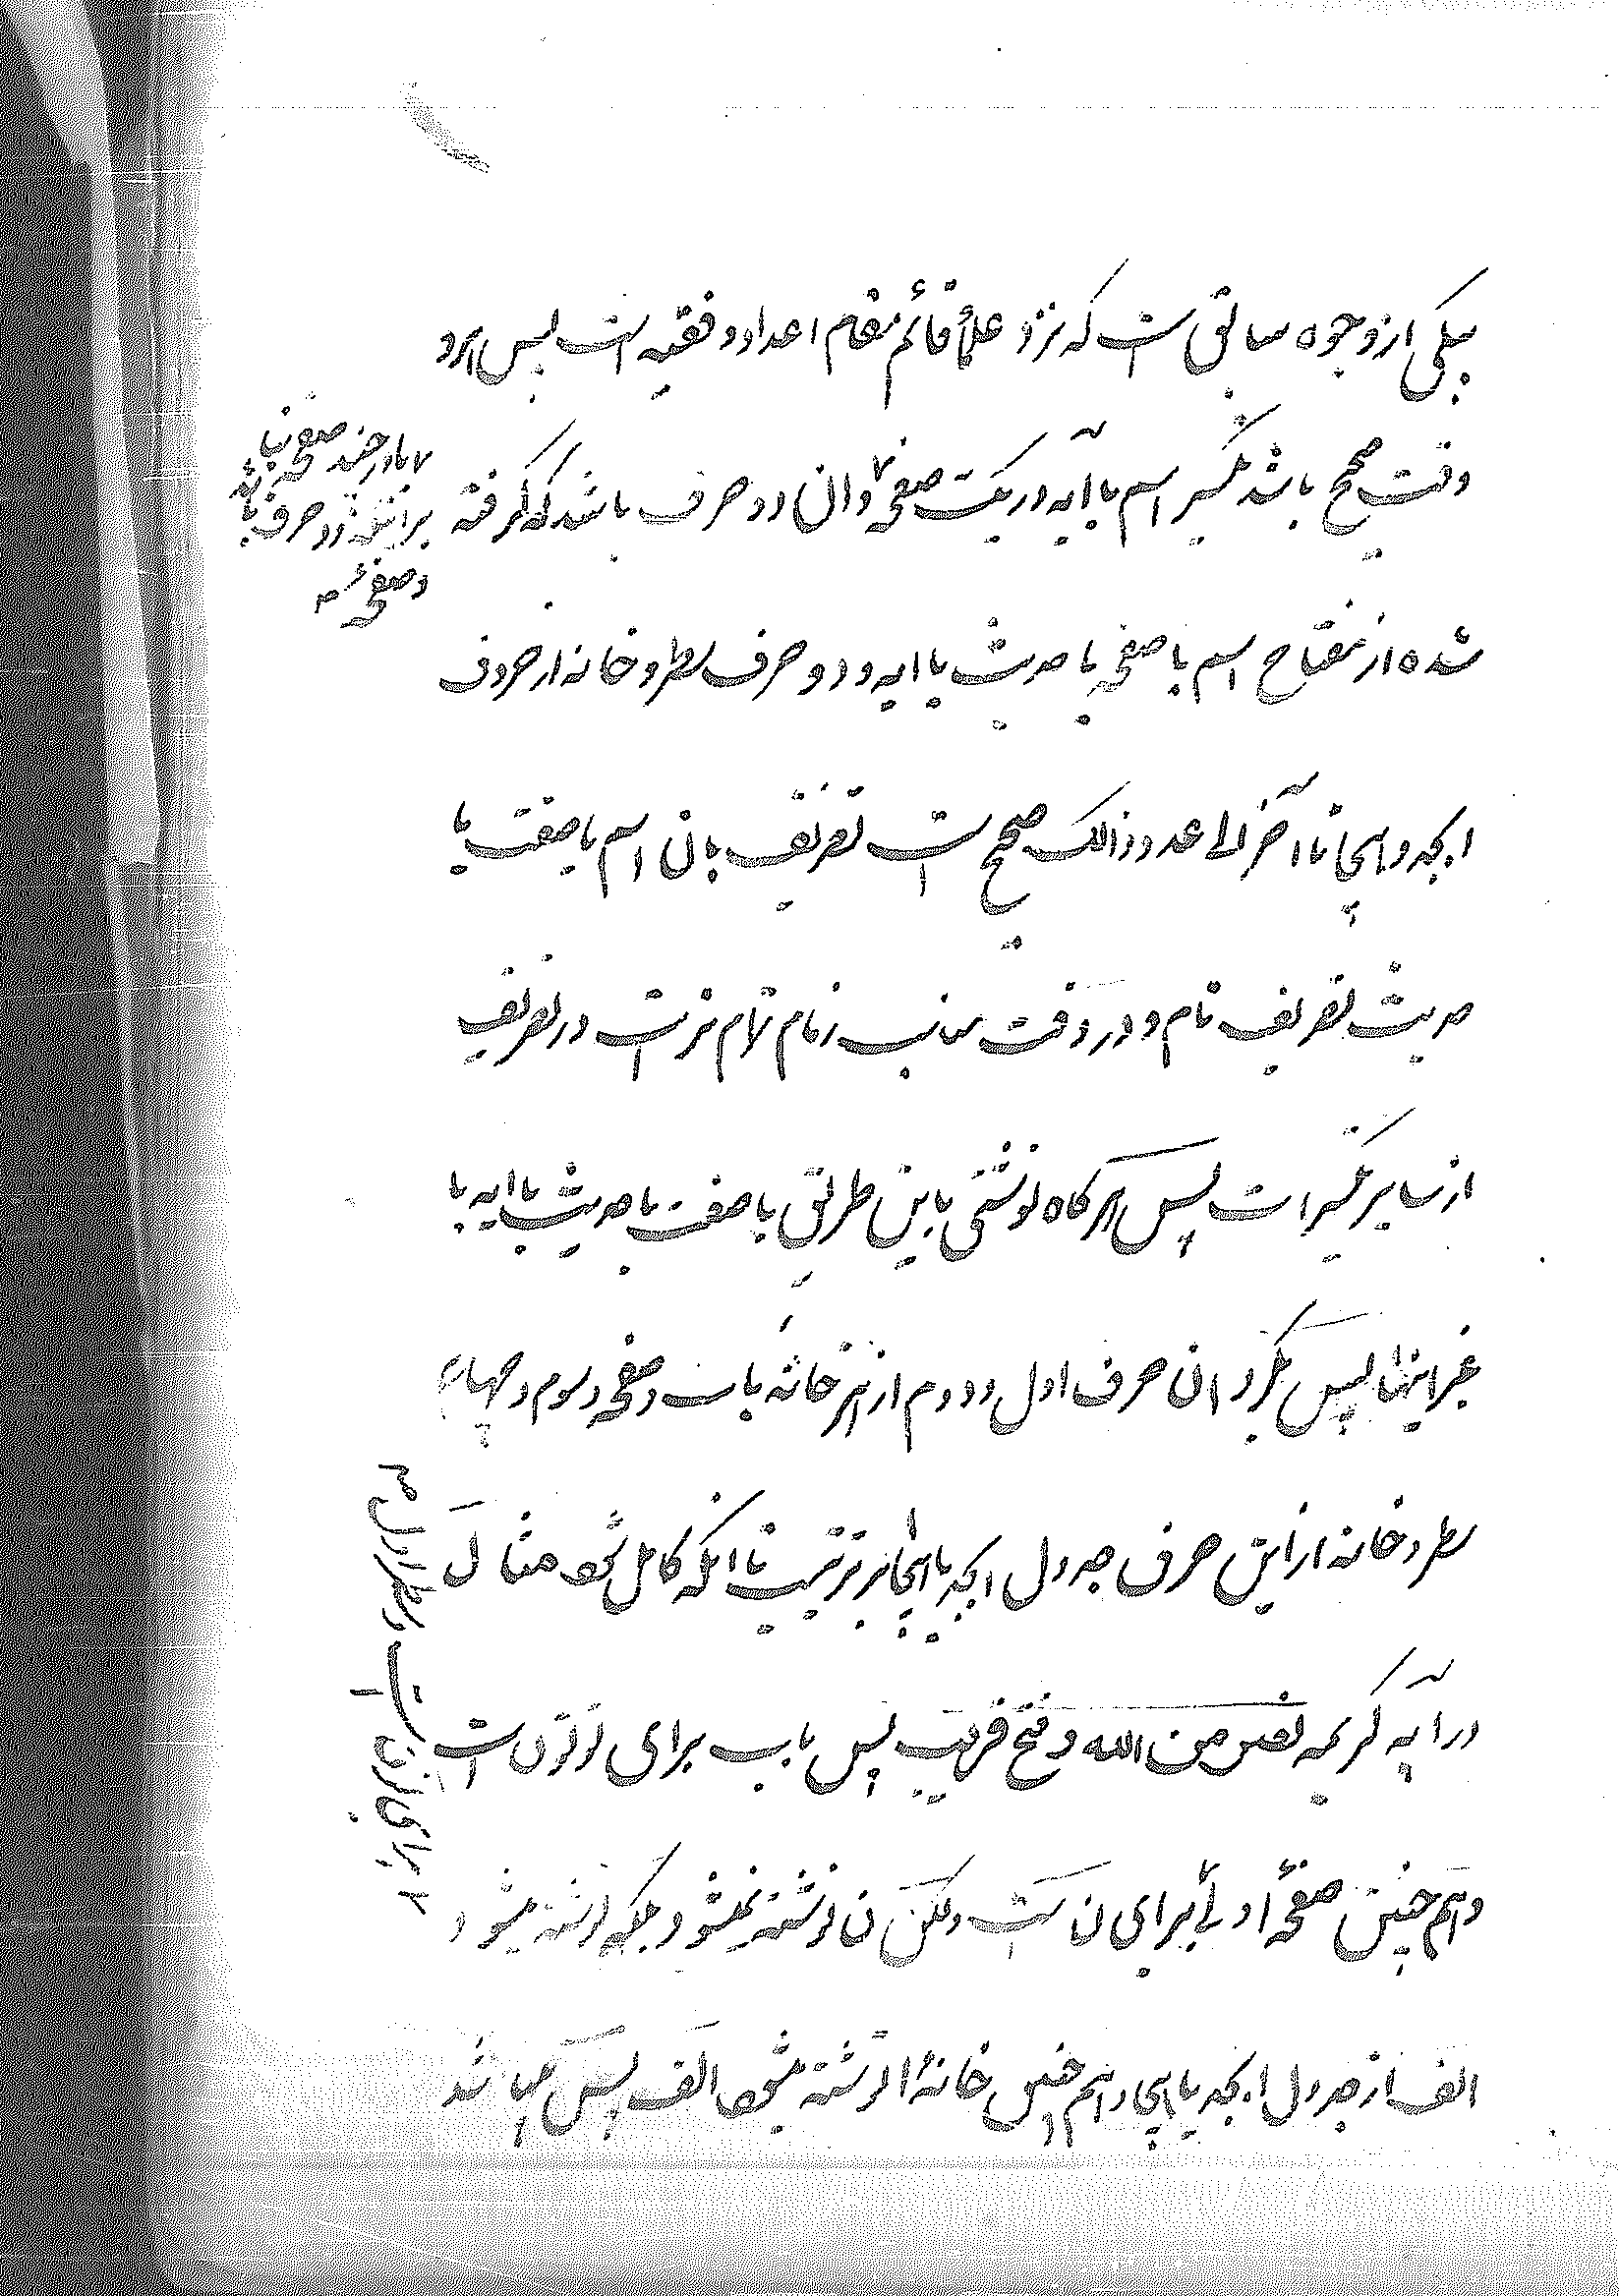 بیکی از وجوه سابق است که نزد علماء قائم مقام اعداد وفقیه است پس هر
وقت صحیح باشد تکسیر اسم یا آیه در یکت صفحه و ان دو حرف باشد که گرفته
شده از مفتاح اسم یا صفحه یا حدیث یا ایه و دو حرف سطر و خانه از حروف
ابجد و یا ایجا تا آخر الی عدد ذالک صحیح است تصریف بان اسم یا صفت یا
حدیث تصریف تام و در وقت مناسب زمام تمام تر است در تصریف
از سایر تکسیرات پس هرگاه نوشتی باین طریق یا صفت یا حدیث یا ایه یا
غیر اینها پس بگردان حرف اول و دوم از هر خانه باب و صفحه و سوم و چهارم
سطر و خانه از این حرف جدول ابجد یا ایجا بر ترتیب تا انکه کامل شود مثال
در آیه کریمه نصر من الله و فتح قریب پس باب برای نون است
و هم چنین صفحه اولی برای ن است ولکن ن نوشته نمیشود بلکه نوشته میشود
الف از جدول ابجد یا ایجا و هم چنین خانه نوشته میشود الف پس میباشد
یا در چند صفحه
دو حرف
و صفحه
برای ن است و سطر اول